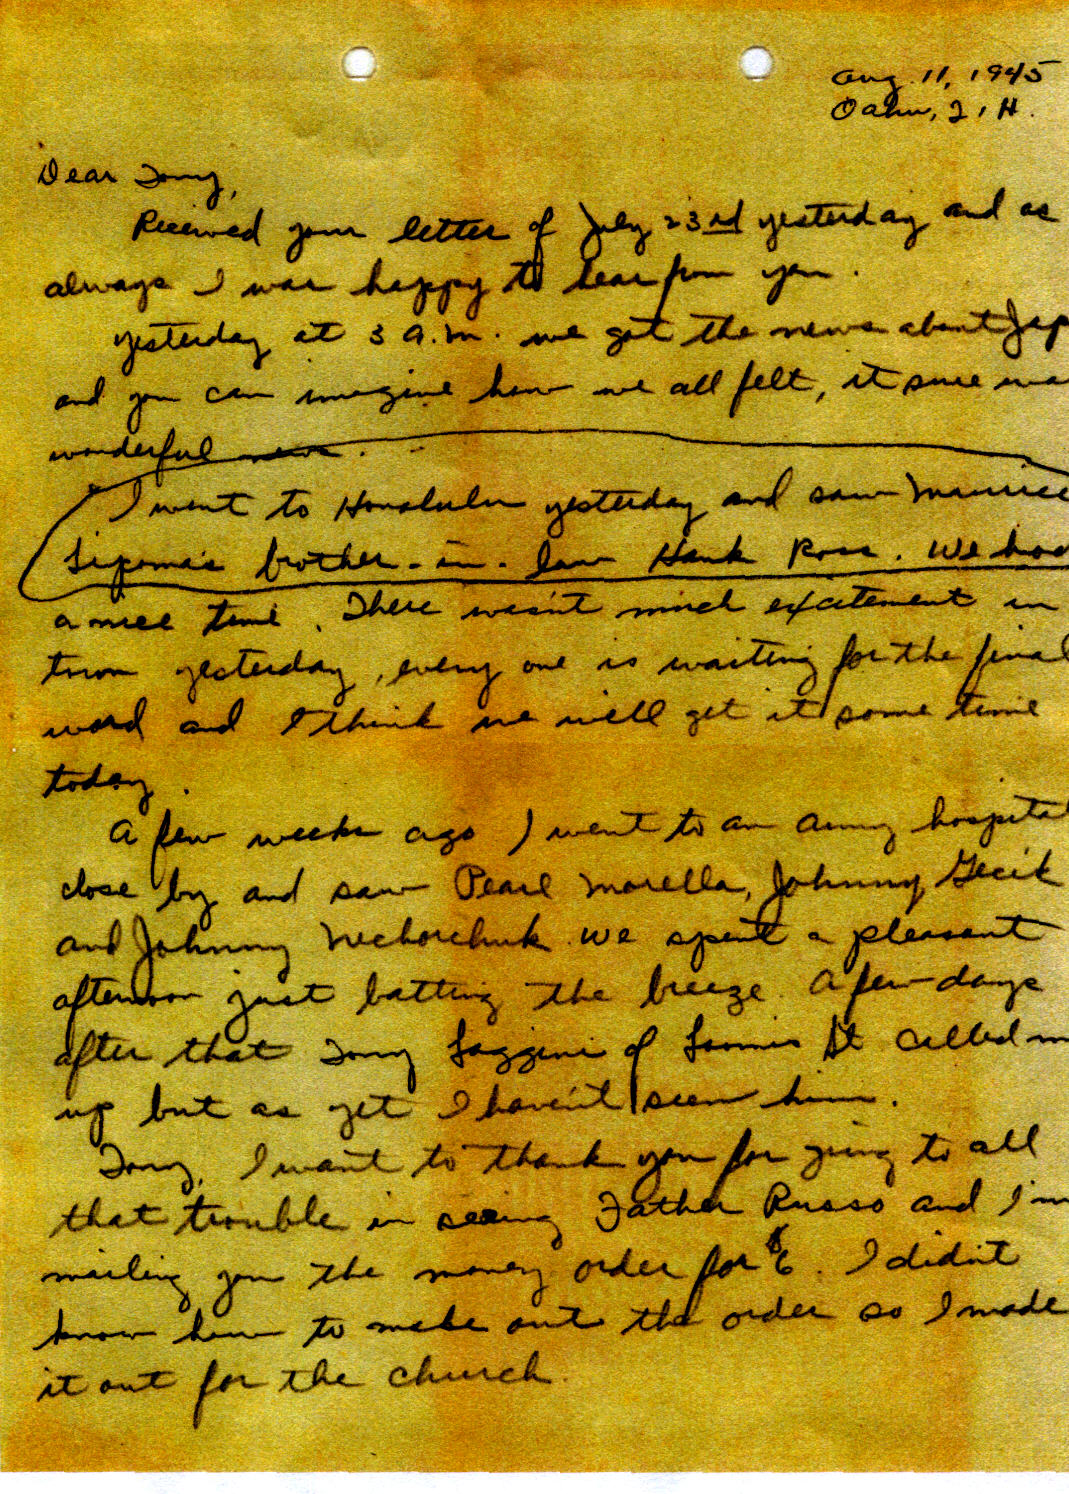 Aug. 11, 1945
Oahu, T.H.
Dear Tony,
Received your letter of July 23rd yesterday and as
always I was happy to hear from you.
Yesterday at 3 A.M. we got the news about Jap
and you can imagine how we all felt, it sure wa
wonderful news.
I went to Honolulu yesterday and saw Maurice
brother-in-law Hank Ross. We had
a nice time. There wasn't much excitement in
town yesterday, every one is waiting for the final
word and I think we will get it some time
today.
A few weeks ago I went to an army hospital
close by and saw Pearl Morella, Johnny Gecik
and Johnny We spent a pleasant
afternoon just batting the breeze. A few days
after that Tony of Loomis St called m
up but as yet I haven't seen him.
Tony, I want to thank you for going to all
that trouble in seeing Father Russo and I'm
mailing you the money order for $6. I didn't
know how to make out the order so I made
it out for the church.